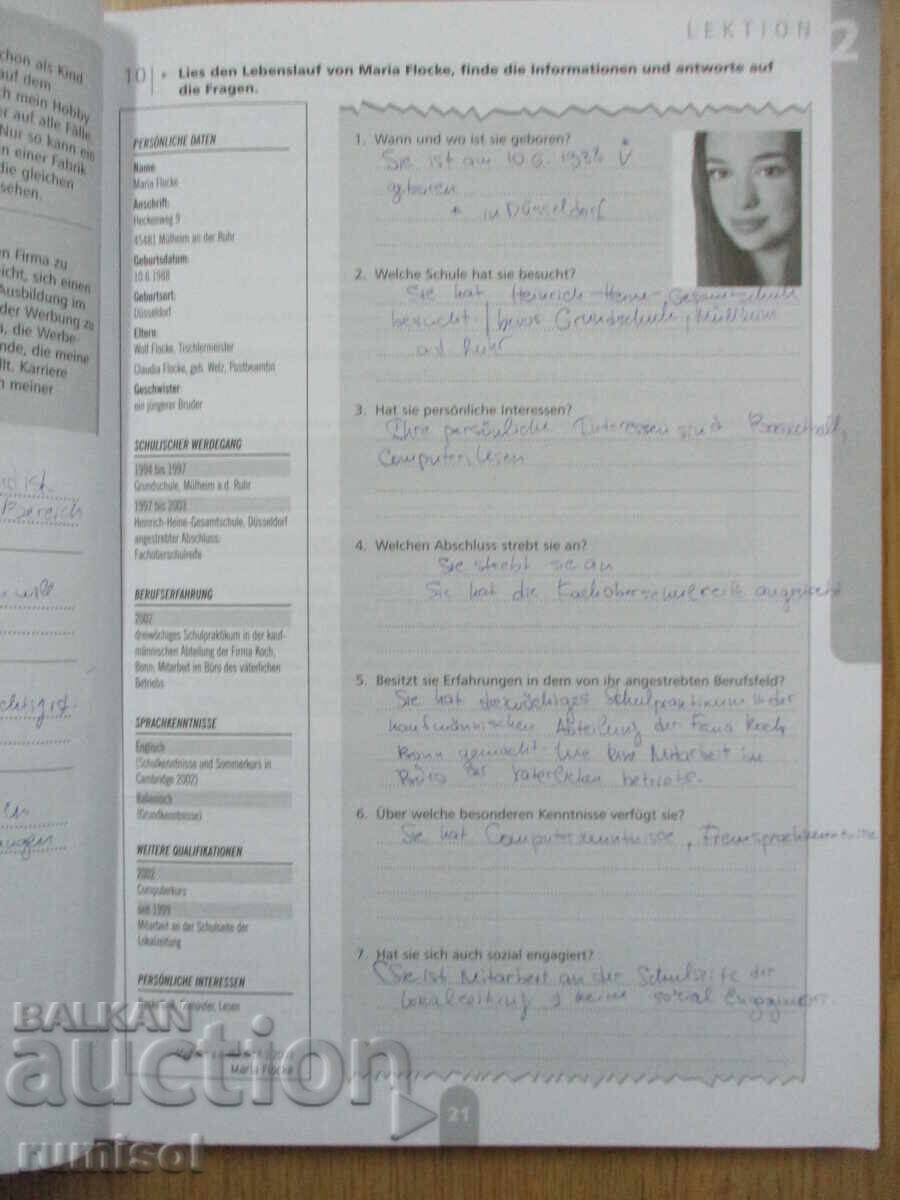 LEKTION 2
chon als Kind
auf dem
ch mein Hobby
er auf alle Fälle
Nur so kann ein
in einer Fabrik
die gleichen
sehen.
en Firma zu
eicht, sich einen
Ausbildung im
der Werbung zu
a, die Werbe-
nde, die meine
llt. Karriere
n meiner
ist
Bereich
10 • Lies den Lebenslauf von Maria Flocke, finde die Informationen und antworte auf
die Fragen.
PERSÖNLICHE DATEN
Name
Maria Flocke
Anschrift:
Heckenweg 9
45481 Mülheim an der Ruhr
Geburtsdatum:
10.6.1988
Geburtsort:
Düsseldorf
Eltern:
Wolf Flocke, Tischlermeister
Claudia Flocke, geb. Welz, Postbeamtin
Geschwister:
ein jüngerer Bruder
SCHULISCHER WERDEGANG
1994 bis 1997
Grundschule, Mülheim a.d. Ruhr
1997 bis 2003
Heinrich-Heine-Gesamtschule, Düsseldorf
angestrebter Abschluss:
Fachoberschulreife
BERUFSERFAHRUNG
2002
dreiwöchiges Schulpraktikum in der kauf-
männischen Abteilung der Firma Koch,
Bonn; Mitarbeit im Büro des väterlichen
Betriebs
SPRACHKENNTNISSE
Englisch
(Schulkenntnisse und Sommerkurs in
Cambridge 2002)
Italienisch
(Grundkenntnisse)
WEITERE QUALIFIKATIONEN
2002
Computerkurs
seit 1999
Mitarbeit an der Schulseite der
Lokalzeitung
PERSÖNLICHE INTERESSEN
Computer, Lesen
Maria Flocke
1. Wann und wo ist sie geboren?
Sie ist am 10.6.1988
geboren
in Düsseldorf
2. Welche Schule hat sie besucht?
Sie hat Heinrich-Heine-Gesamtschule
besucht / Grundschule, Müllheim
a.d Ruhr
3. Hat sie persönliche Interessen?
Ihre persönliche Interessen sind Basketball,
Computer, Lesen
4. Welchen Abschluss strebt sie an?
Sie strebt sie an
Sie hat die Fachoberschulreife
5. Besitzt sie Erfahrungen in dem von ihr angestrebten Berufsfeld?
Sie hat Schulpraktikum in der
kaufmännischen Abteilung der Koch
Bonn gemacht Mitarbeit im
Büro des väterlichen betriebs.
6. Über welche besonderen Kenntnisse verfügt sie?
Sie hat Computerkenntnisse,
7. Hat sie sich auch sozial engagiert?
Sie ist Mitarbeit an der Schulseite der
Lokalzeitung keine sozial
21
BALKAN
auction
rumisol